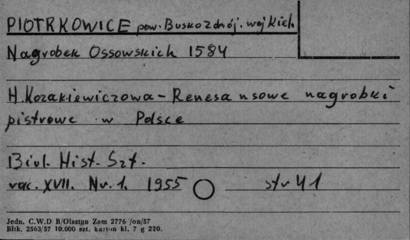 PIOTRKOWICE pow. Busko zdrój. woj Kiel.
Nagrobek Ossowskich 1584
H. Kozakiewiczowa – Renesansowe nagrobki
piętrowe w Polsce
Biul. Hist. Szt.
rok. XVII. Nr. 1. 1955 str 41
Jedn. C.W.D B/Olsztyn Zam 2776 /on/57
Bltk. 2563/57 10.000 szt. karton kl. 7 g 220.